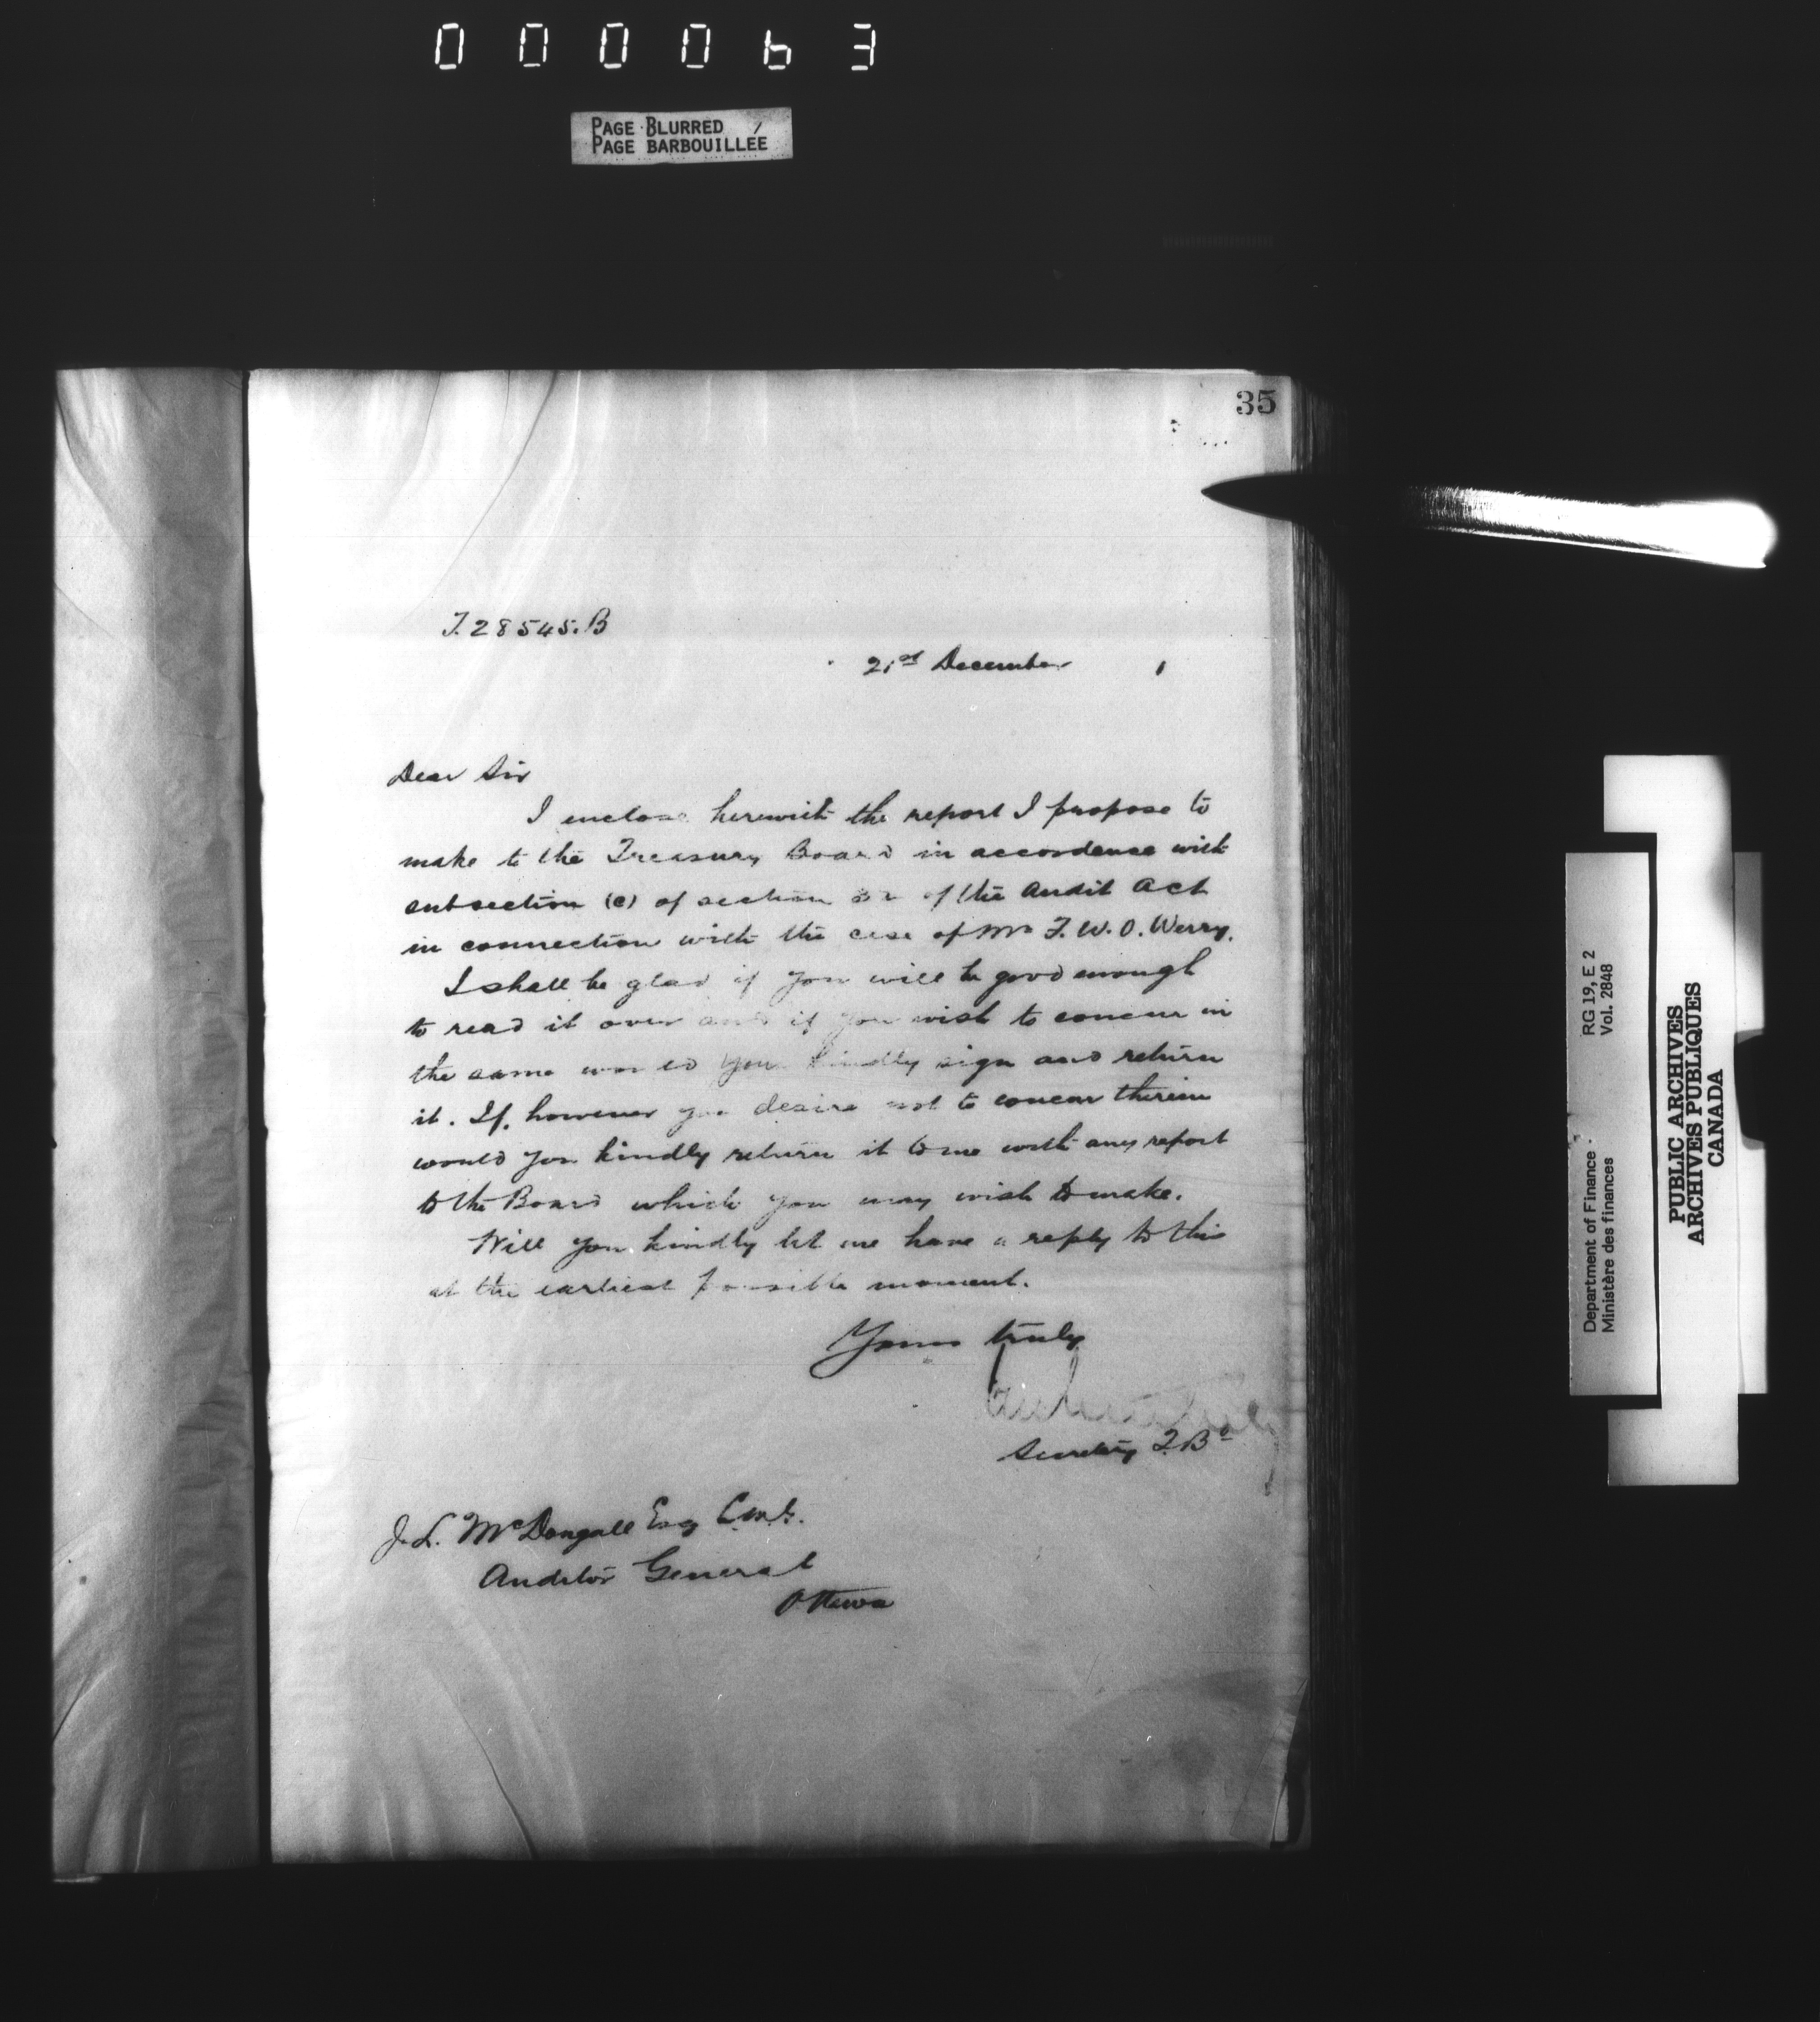 000063
PAGE BLURRED
PAGE BARBOUILLÉE
35
J. 28545. B
21st December 1
Dear Sir
I enclose herewith the report I propose to
make to the Treasury Board in accordance with
subsection (c) of section of the Audit Act
in connection with the case of Mr F. W. O. Werry.
I shall be glad if you will be good enough
to read it over and if you wish to concur in
the same would you kindly sign and return
it. If, however you desire not to concur therein
would you kindly return it to me with any report
to the Board which you may wish to make.
Will you kindly let me have a reply to this
at the earliest possible moment.
Yours truly
Secretary T. Bd
J. L. McDougall Esq C.M.G.
Auditor General
Ottawa
Department of Finance
Ministère des finances
RG 19, E 2
Vol. 2848
PUBLIC ARCHIVES
ARCHIVES PUBLIQUES
CANADA